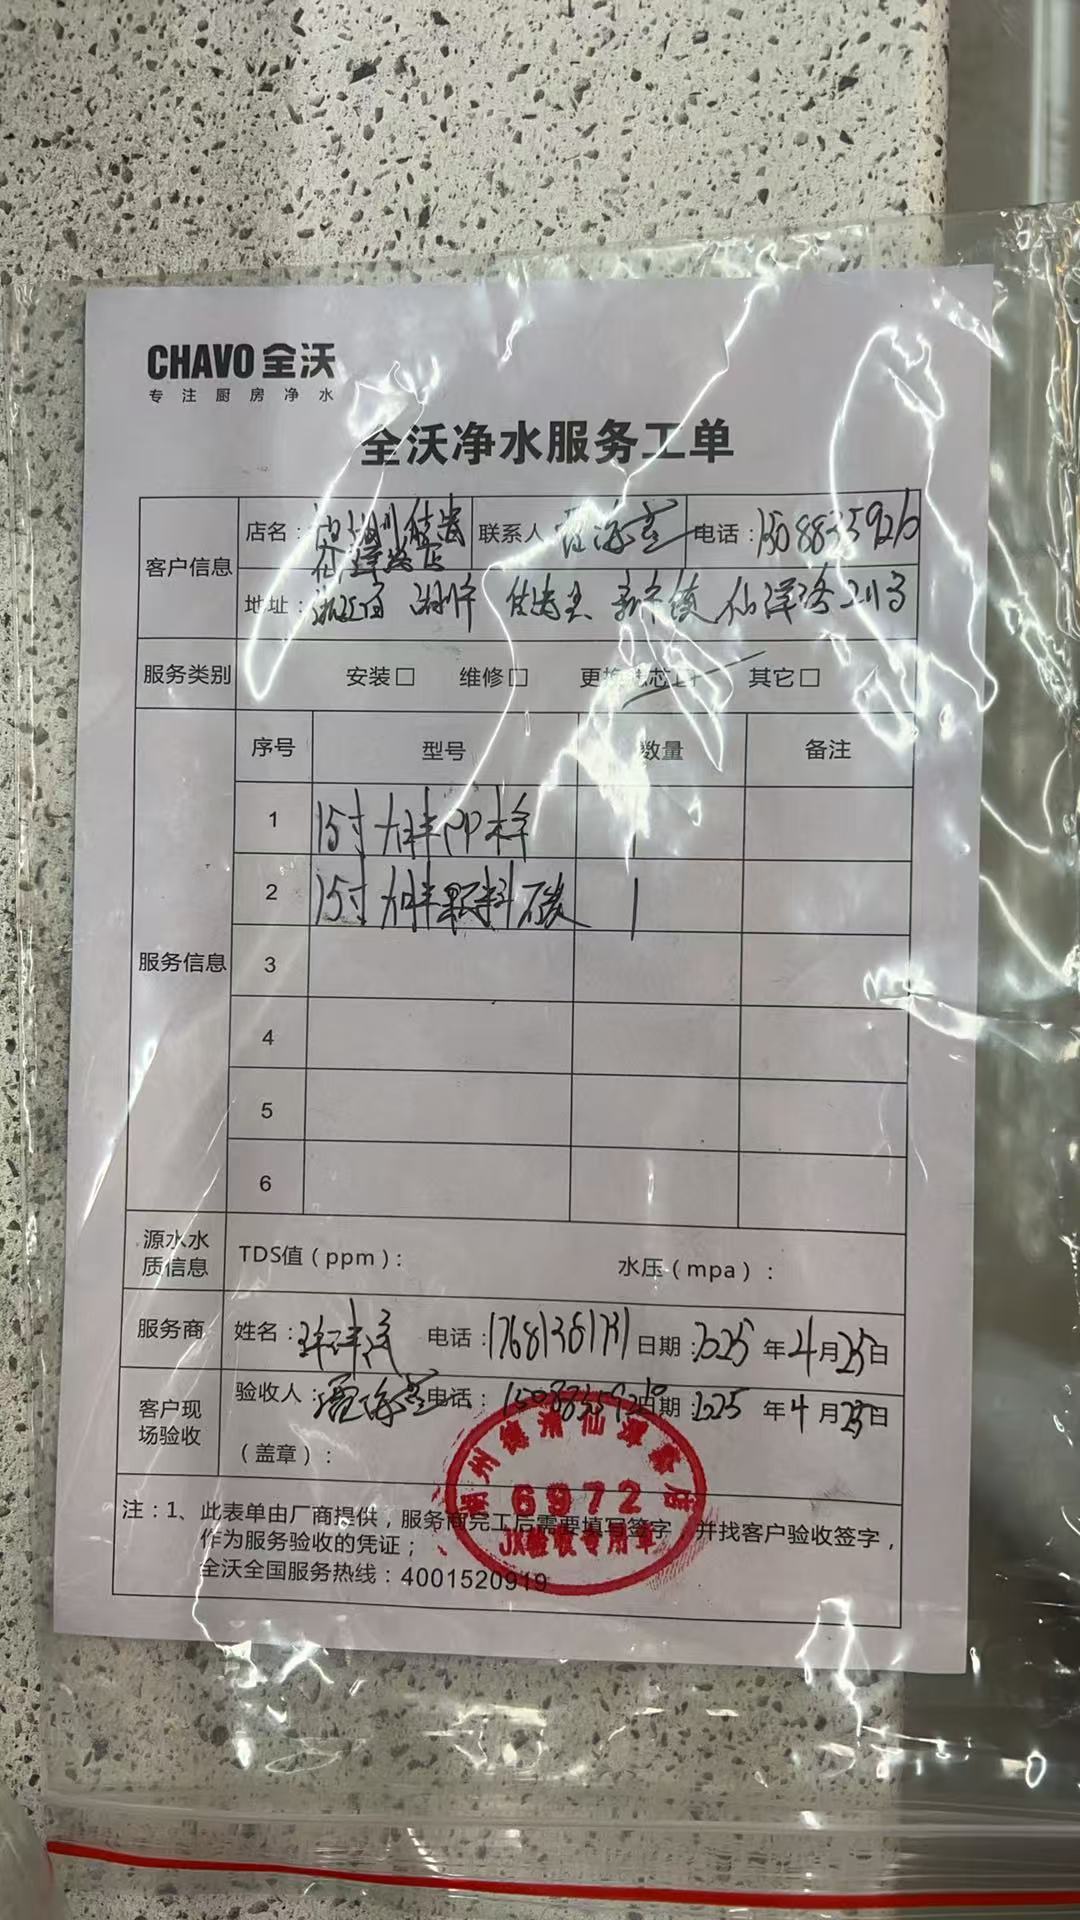 CHAVO 全沃
专注厨房净水
全沃净水服务工单
客户信息
店名：湖州德清
联系人 电话：1508835926
地址：浙江省 湖州 德清县 新市镇 仙潭路211号
服务类别 安装□ 维修□ 更换滤芯☑ 其它□
服务信息
序号 型号 数量 备注
1 15寸大胖PP棉 1
2 15寸大胖颗料碳 1
3
4
5
6
源水水质信息 TDS值（ppm）： 水压（mpa）：
服务商 姓名： 电话：日期：2025年4月25日
客户现场验收
验收人： 电话： 日期：2025年4月25日
（盖章）：
州德清仙潭路店
6972
JX验收专用章
注：1、此表单由厂商提供，服务商完工后需要填写签字，并找客户验收签字，
作为服务验收的凭证；
全沃全国服务热线：4001520919